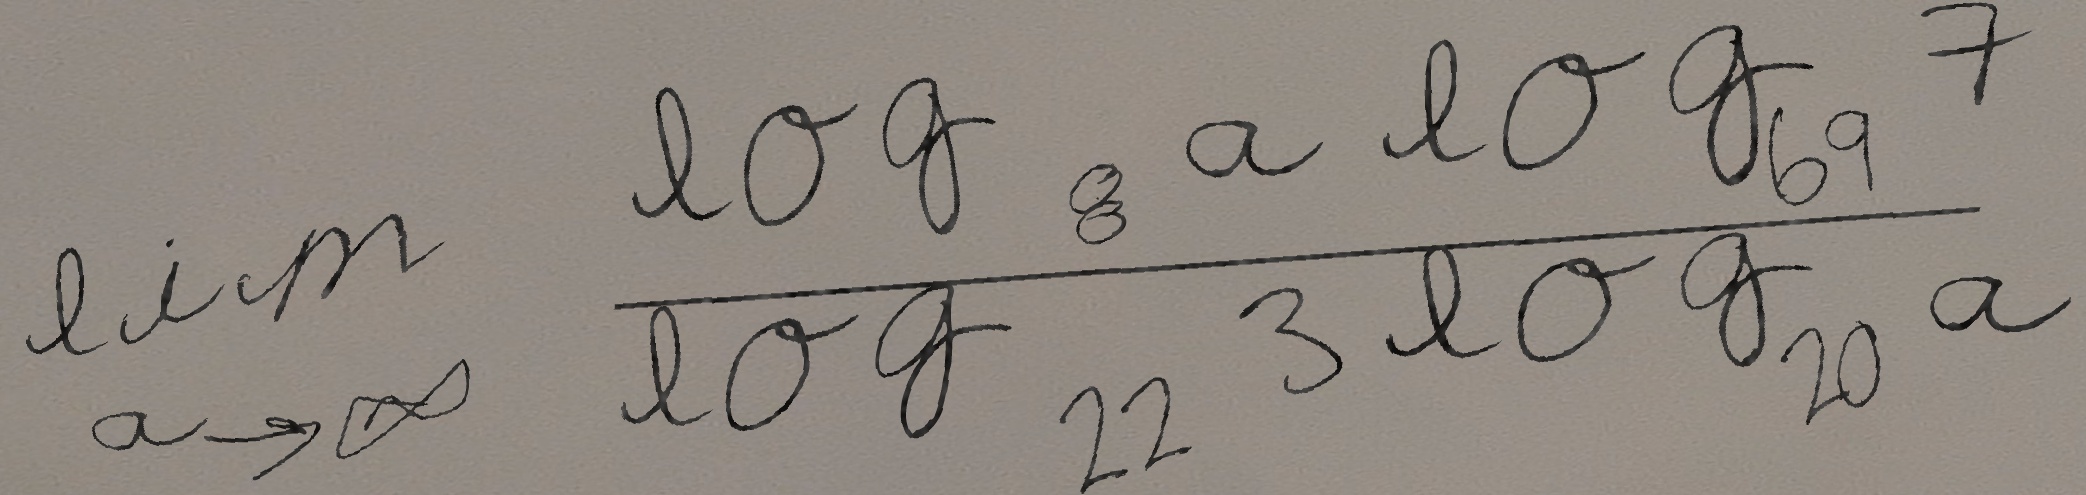 \lim_{a \to \infty} \frac{\log_{8} a \log_{69} 7}{\log_{22} 3 \log_{20} a}